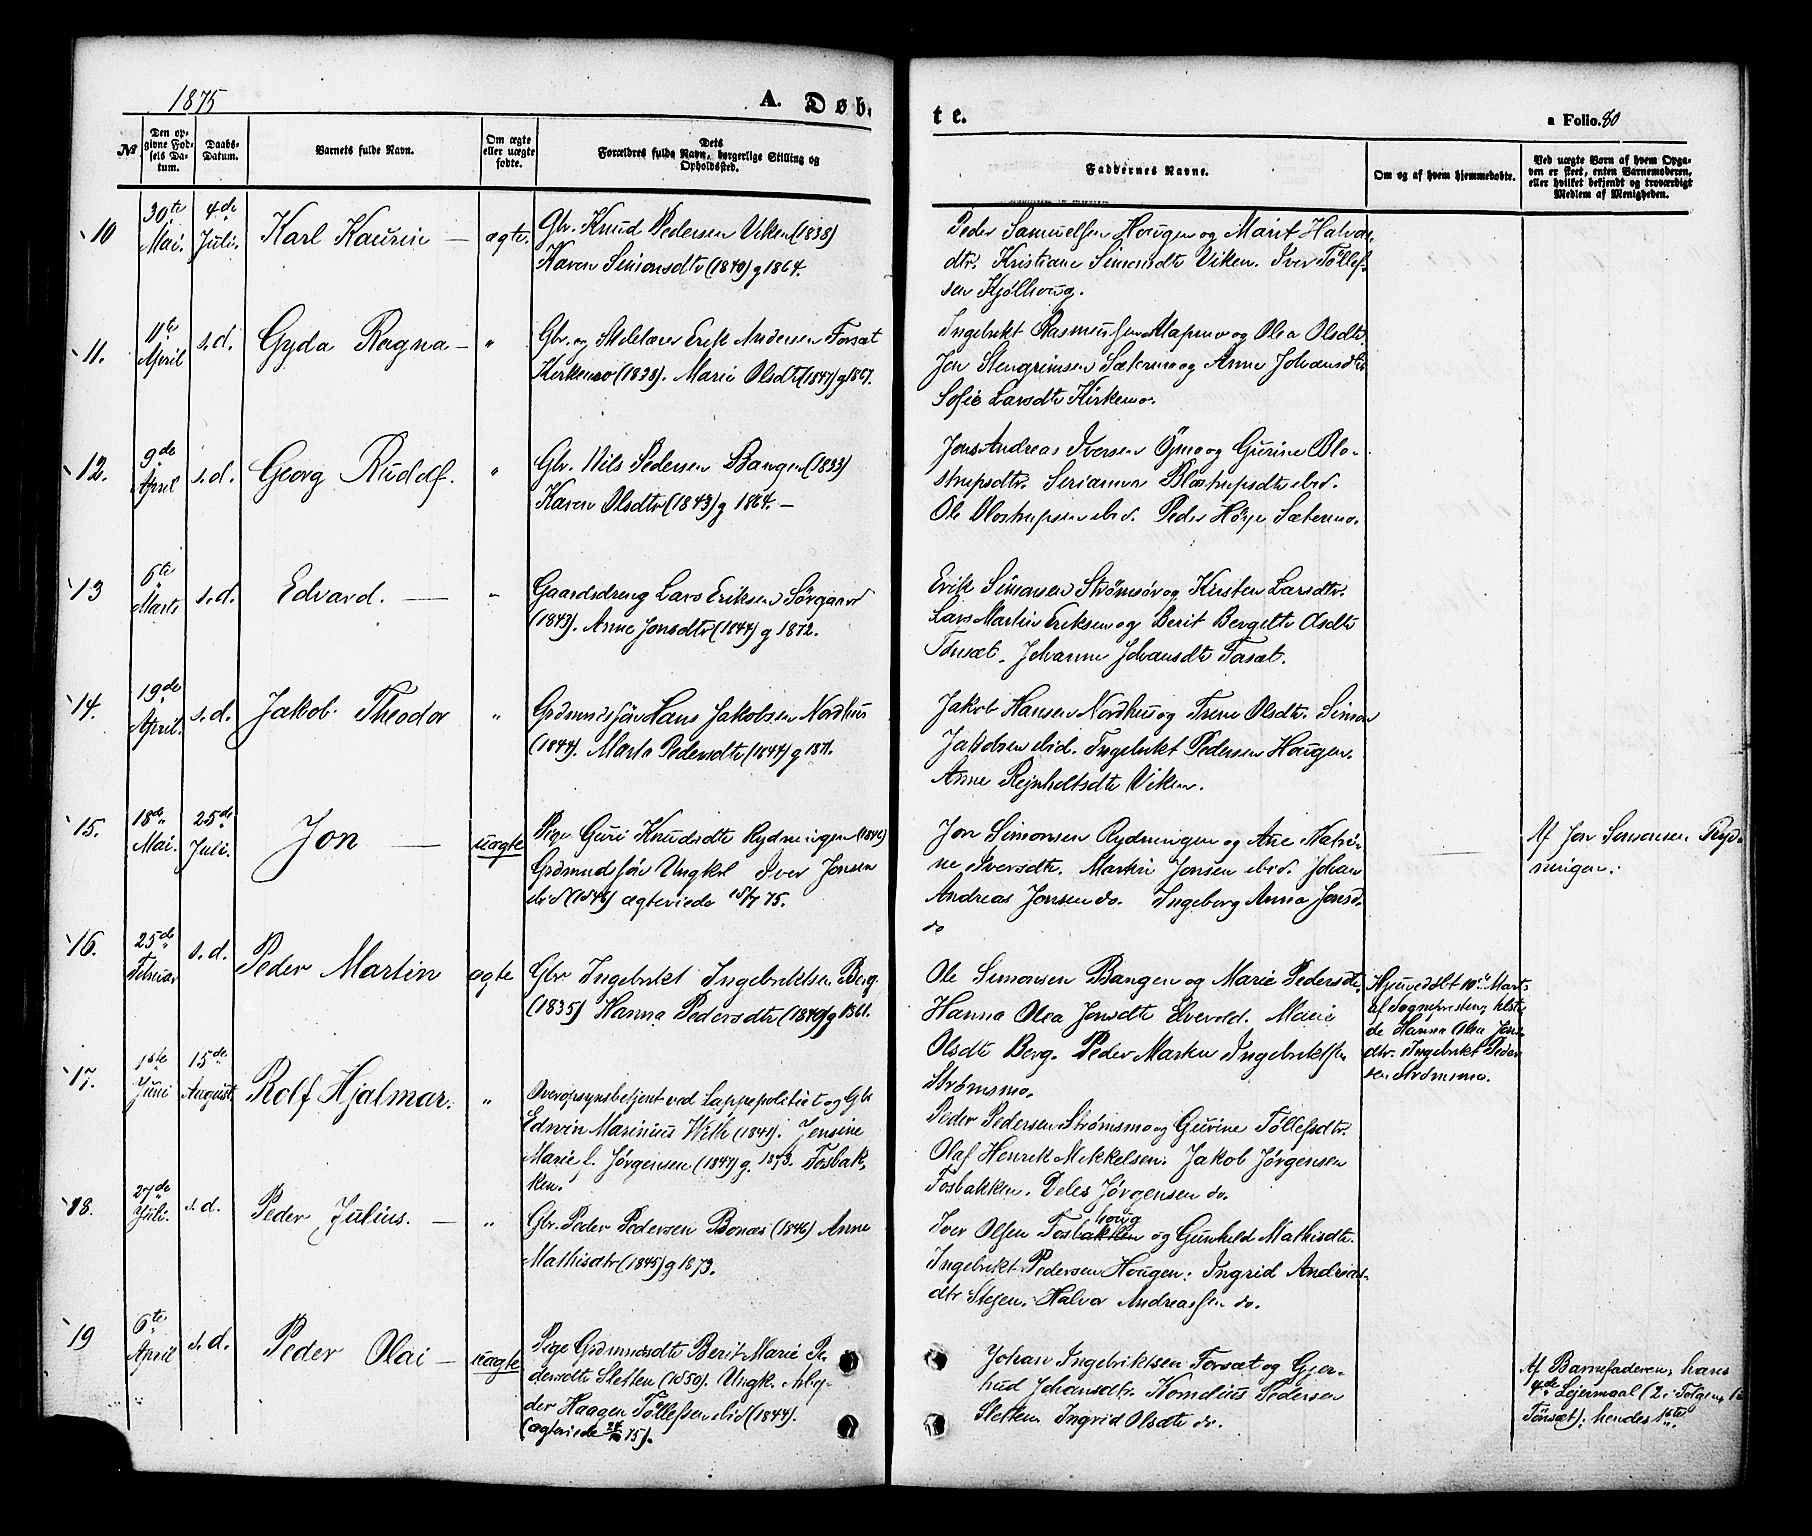 1875
A. Døb-
te.
a Folio. 80
No
Den opgivne Fødsels Datum.
Daabs-Datum.
Barnets fulde Navn.
Om ægte eller uægte fødte.
Dets Forældres fulde Navn, borgerlige Stilling og Opholdssted.
Faddernes Navne.
Om og af hvem hjemmedøbte.
Ved uægte Børn af hvem Opgaven er skeet, enten Barnemoderen, eller hvilket bekjendt og troværdigt Medlem af Menigheden.
10
30te Mai.
4de Juli.
Karl Kaurin
ægte.
Gbr. Knud Pedersen Viken (1838)
Karen Simonsdtr (1840) g 1864.
Peder Samuelsen Hougen og Marit Halvor
dtr. Kristiane Simonsdtr Viken. Iver Tollef-
sen Kjølhoug.
11.
11te April
s.d.
Gyda Ragna
"
Gbr. og Erik Andersen Tonsæt
Kirkemo (1838). Marie Olsdtr (1847) g 1867.
Ingebrikt Rasmussen og Olea Olsdtr.
Jon Stengrimsen Sætermo og Anne Johansdtr
Sofie Larsdtr Kirkemo.
12.
9de April
s.d.
Georg Rudolf.
"
Gbr. Nils Pedersen Bangen (1833)
Karen Olsdtr (1843) g 1864. –
Jons Andreas Iversen Ømo og Gurine Blo-
strupsdtr. Serianna Blostrupsdtr ibid.
Ole Blostrupsen ibid. Peder Høye Sætermo.
13
6te Marts
s.d.
Edvard.
"
Gaardsdreng Lars Eriksen Sørgaard
(1843). Anne Jonsdtr (1844) g 1872.
Erik Simonsen Strømsør og Kirsten Larsdtr.
Lars Martin Eriksen og Berit Bergitte Olsdtr
Tonsæt. Johanne Johansdtr Fosæt.
14.
19de April.
s.d.
Jakob Theodor
"
Grdmandssøn Hans Jakobsen Nordhus
(1844). Marta Pedersdtr (1844) g 1871.
Jakob Hansen Nordhus og Trene Olsdtr. Simon
Jakobsen ibid. Ingebrikt Pedersen Hougen.
Anne Reinholtsdtr Viken.
15.
18de Mai.
25de Juli.
Jon
uægte
Pige Guri Knudsdtr Rydningen (1846)
Grdmandssøn Ungkl Iver Jonsen
ibid (1846) ægteviede 18/7 75.
Jon Simonsen Rydningen og Ane Katri-
ne Iversdtr. Martin Jonsen ibid. Johan
Andreas Jonsen do. Ingeborg Anna Jonsd.
do
Af Jon Simonsen Ryd-
ningen.
16.
25de Februar
s.d.
Peder Martin
ægte
Gbr Ingebrikt Ingebriktsen Berg
(1835) Hanna Pedersdtr (1840) g 1861.
Ole Simonsen Bangen og Marie Pedersdtr.
Hanna Olea Jonsdtr Elvevold. Marie
Olsdtr Berg. Peder Martin Ingebriktsen
Strømsmo.
Hjemmedøbt 10de Marts
af Sognepresten, holst
de Hanna Olea Jons
dtr. Ingebrikt Peder
sen Strømsmo.
17.
1ste Juni
15de August.
Rolf Hjalmar.
"
Overopsynsbetjent ved Lappepolitiet og Gbr
Edwin Marinius Weth (1841). Jensine
Marie f. Jørgensen (1847) g. 1873. Fosbak-
ken.
Peder Pedersen Strømsmo og Gurine Tollefsdtr.
Olaf Henrik Mikkelsen. Jakob Jørgensen
Fosbakken. Deles Jørgensen do.
18.
27de Juli.
s.d.
Peder Julius.
"
Gbr. Peder Pedersen Bonæs (1846) Anne
Mathisdtr (1845) g 1873.
Iver Olsen Fosbakken houg og Gunhild Mathisdtr.
Ingebrikt Pedersen Hougen. Ingrid Andreas-
dtr Stejen. Halvor Andreassen do.
19
6te April
s.d.
Peder Olai
uægte
Pige Grdmandsdtr Berit Marie Pe-
dersdtr Sletten (1850). Ungk. Arbej-
der Haagen Tollefsen ibid (1844).
(ægteviede 75).
Johan Ingebriktsen Fossæt og Gjer-
trud Johansdtr. Kornelius Pedersen
Sletten. Ingrid Olsdtr do.
Af Barnefaderen, hans
4de Lejermaal (2 i Tolgen, 1 i
Tönsæt); hendes 1ste.